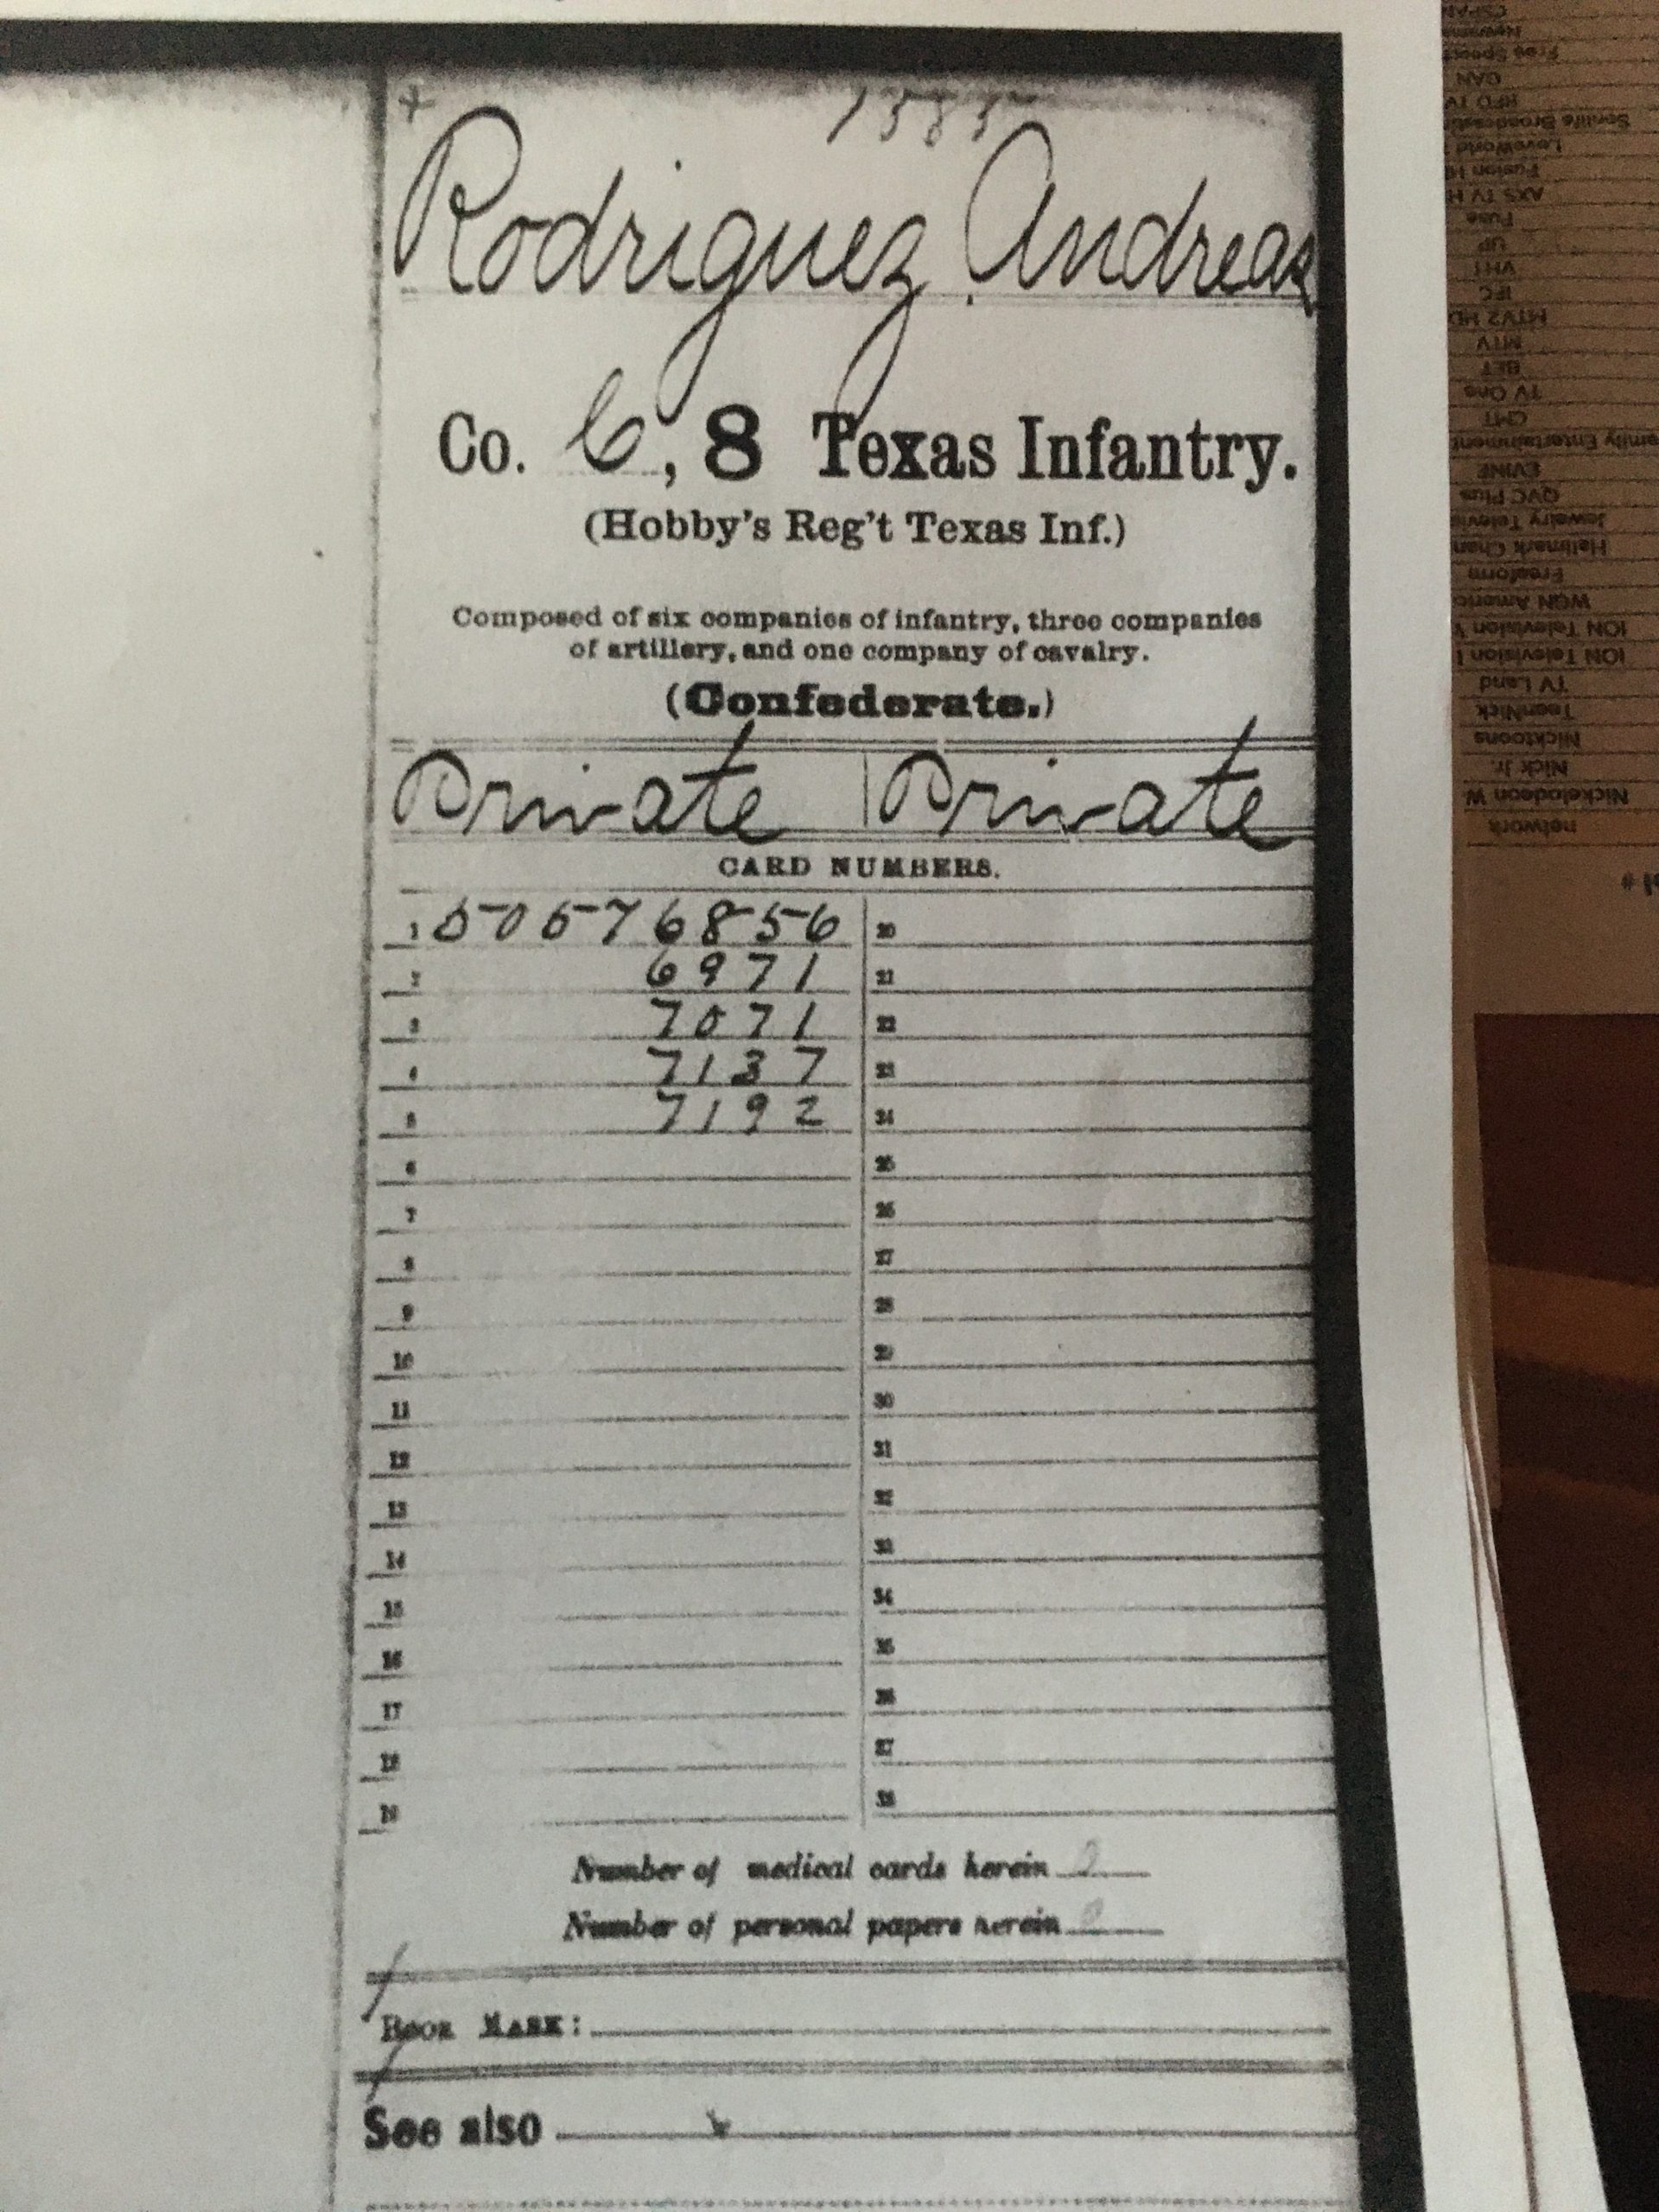 1585
Rodriguez, Andreas
Co. C, 8 Texas Infantry.
(Hobby's Reg't Texas Inf.)
Composed of six companies of infantry, three companies
of artillery, and one company of cavalry.
(Confederate.)
Private Private
CARD NUMBERS.
1 50576856 20
2 6971 21
3 7071 22
4 7137 23
5 7192 24
6 25
7 26
8 27
9 28
10 29
11 30
12 31
13 32
14 33
15 34
16 35
17 36
18 37
19 38
Number of medical cards herein 0
Number of personal papers herein 0
BOOK MARK:
See also
CSPAN
Newsmax
Free Speech
GAN
RFD TV
Sonlife Broadcasti
LoveWorld
Fusion H
AXS TV H
Fuse
UP
VH1
IFC
MTV2 HD
MTV
BET
TV One
CMT
mily Entertainment
EVINE
QVC Plus
Jewelry Televis
Hallmark Chan
Freeform
WGN Americ
ION Television
ION Television
TV Land
TeenNick
Nicktoons
Nick Jr.
Nickelodeon W
network